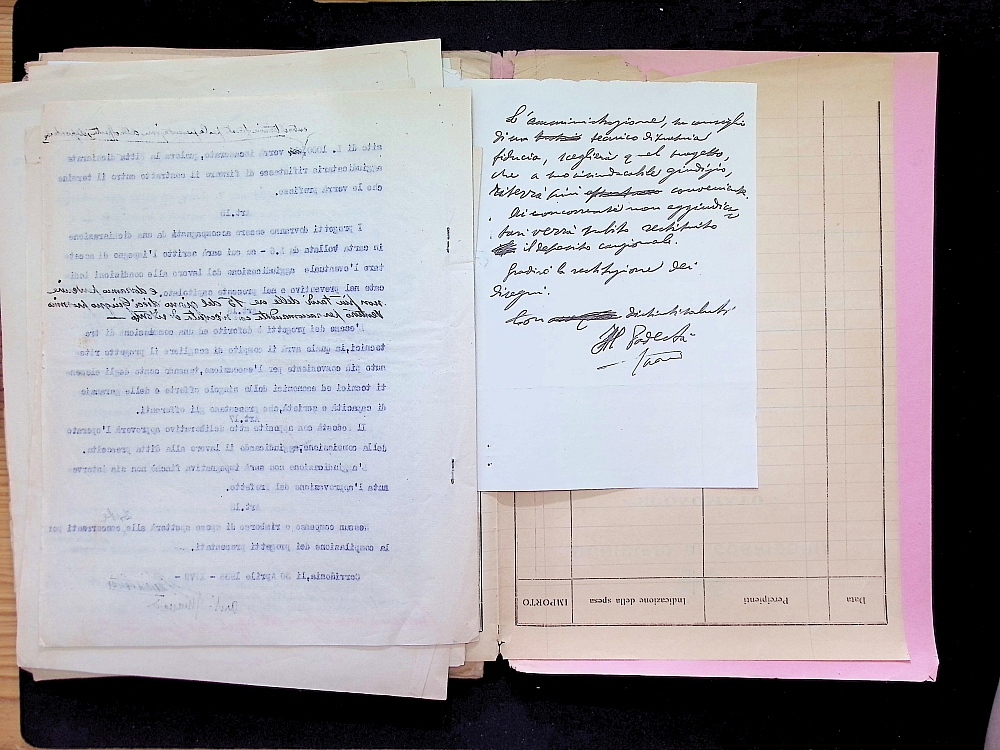 L'amministrazione, su consiglio
di un tecnico di propria
fiducia, sceglierà quel progetto,
che a suo insindacabile giudizio,
riterrà più conveniente.
Ai concorrenti non aggiudica
tari verrà subito restituito
il deposito cauzionale.
Gradirò la restituzione dei
disegni.
Con distinti saluti
Il Podestà
sito di L. 1000, verrà incamerato, qualora la ditta dichiarata
aggiudicataria rifiutasse di firmare il contratto entro il termine
che le verrà prefisso.
Art.16
I progetti dovranno essere accompagnati da una dichiarazione
in carta bollata da - su cui sarà scritto l'impegno di accet
tare l'eventuale aggiudicazione del lavoro alle condizioni indi=
cate nel preventivo e nel presente capitolato, e dovranno pervenire
non più tardi delle ore 15 del giorno
L'esame dei progetti è deferito ad una commissione di tre
tecnici, la quale avrà il compito di scegliere il progetto rite=
nuto più conveniente per l'esecuzione, tenendo conto degli elemen=
ti tecnici ed economici delle singole offerte e delle garanzie
di capacità e serietà, che presentano gli offerenti.
Art.17
Il Podestà con apposito atto deliberativo approverà l'operato
della commissione, aggiudicando il lavoro alla ditta prescelta.
L'aggiudicazione non sarà impegnativa finchè non sia interve=
nuta l'approvazione del Prefetto.
Art.18
Nessun compenso o rimborso di spese spetterà alle concorrenti per
la compilazione dei progetti presentati.
Corridonia, li 30 Aprile
Data
Percipienti
Indicazione della spesa
IMPORTO